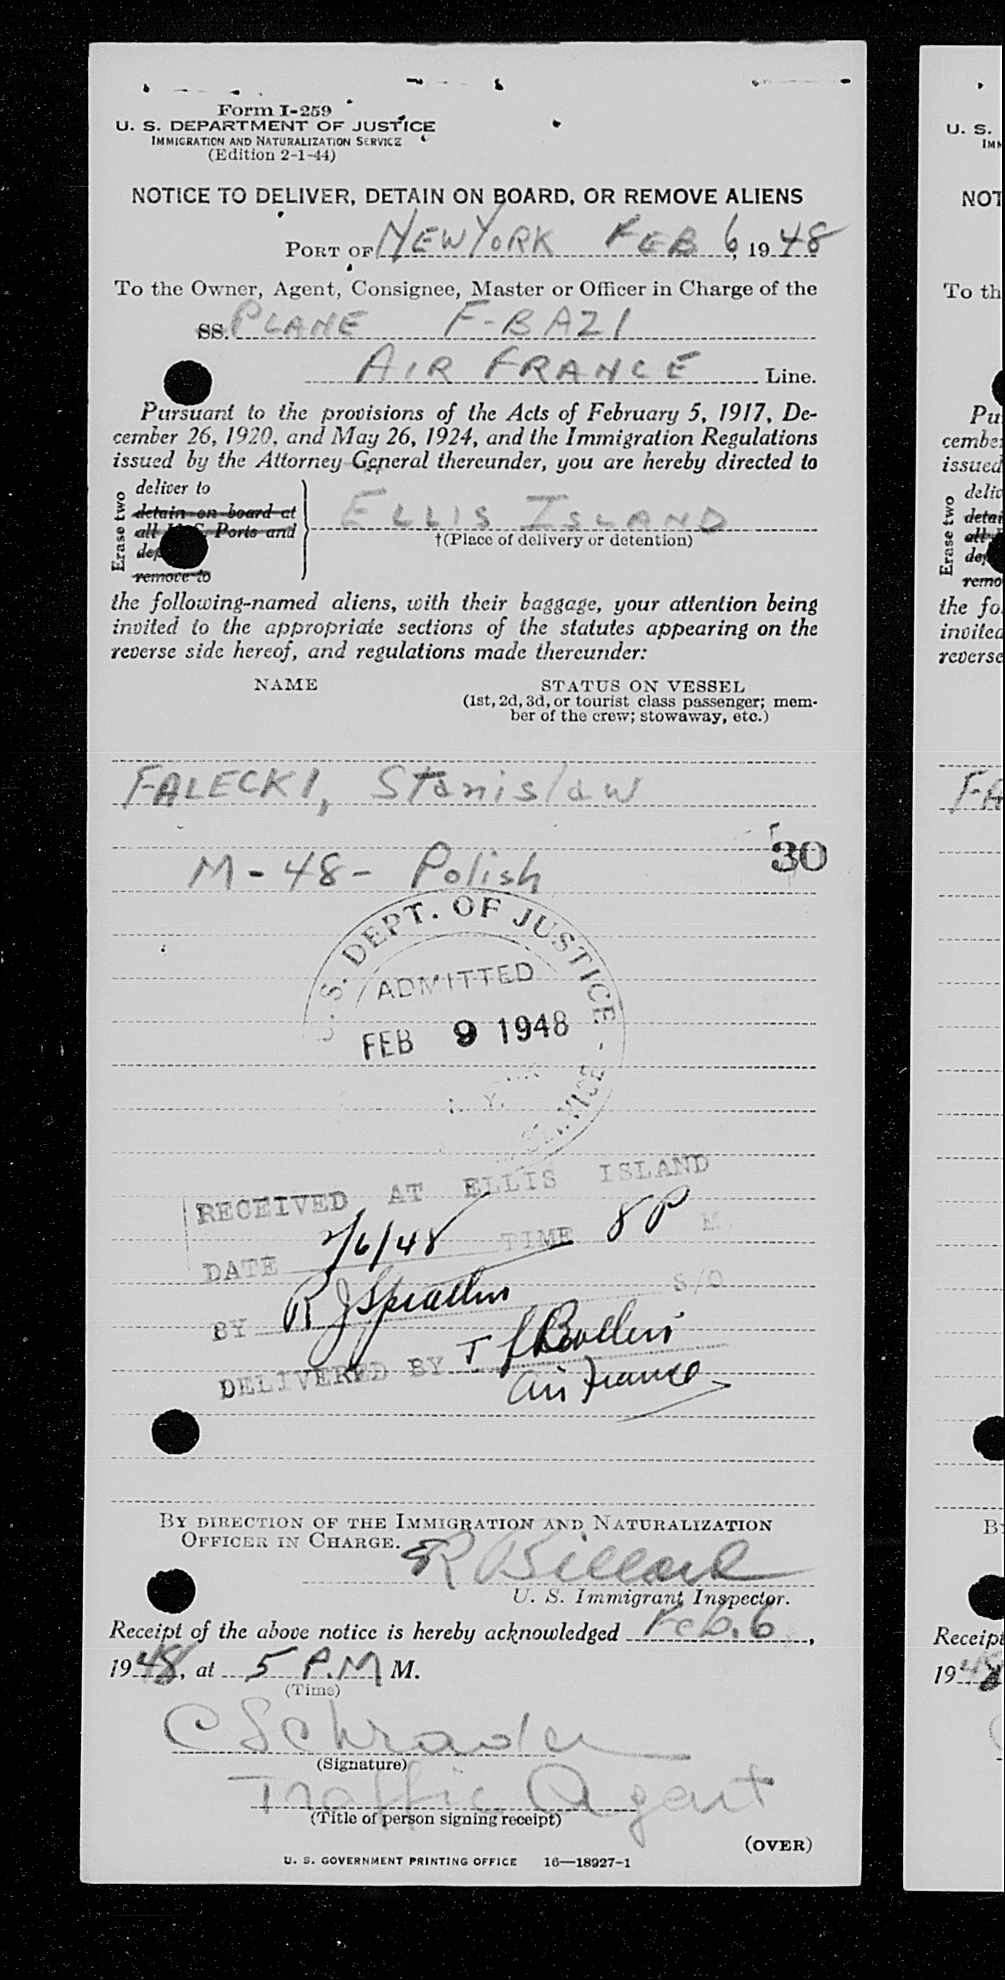 Form I-259
U. S. DEPARTMENT OF JUSTICE
IMMIGRATION AND NATURALIZATION SERVICE
(Edition 2-1-44)
NOTICE TO DELIVER, DETAIN ON BOARD, OR REMOVE ALIENS
PORT OF NEW YORK FEB 6, 1948
To the Owner, Agent, Consignee, Master or Officer in Charge of the
SS. PLANE F-BAZI
AIR FRANCE Line.
Pursuant to the provisions of the Acts of February 5, 1917, De-
cember 26, 1920, and May 26, 1924, and the Immigration Regulations
issued by the Attorney General thereunder, you are hereby directed to
Erase two
deliver to
detain on board at
all U.S. Ports and
remove to
ELLIS ISLAND
†(Place of delivery or detention)
the following-named aliens, with their baggage, your attention being
invited to the appropriate sections of the statutes appearing on the
reverse side hereof, and regulations made thereunder:
NAME STATUS ON VESSEL
(1st, 2d, 3d, or tourist class passenger; mem-
ber of the crew; stowaway, etc.)
FALECKI, Stanislaw
30
M-48- Polish
U.S. DEPT. OF JUSTICE
ADMITTED
FEB 9 1948
N.Y.
SERVICE
RECEIVED AT ELLIS ISLAND
DATE 2/6/48 TIME 8 P M
BY R J S/O
DELIVERED BY
Air France
BY DIRECTION OF THE IMMIGRATION AND NATURALIZATION
OFFICER IN CHARGE.
R Billard
U. S. Immigrant Inspector.
Receipt of the above notice is hereby acknowledged Feb. 6,
1948, at 5 P.M M.
(Time)
C Schrader
(Signature)
Traffic Agent
(Title of person signing receipt)
(OVER)
U. S. GOVERNMENT PRINTING OFFICE 16—18927-1